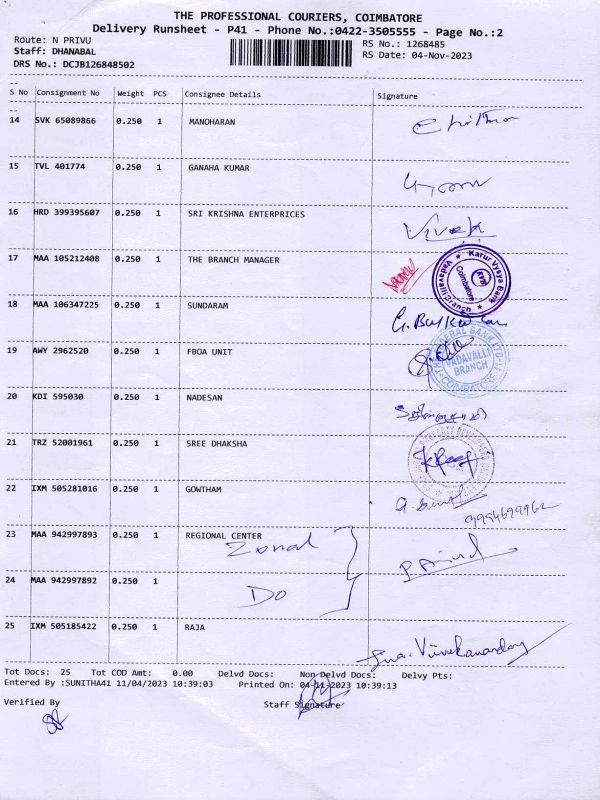 THE PROFESSIONAL COURIERS, COIMBATORE
Delivery Runsheet - P41 - Phone No.:0422-3505555 - Page No.:2
Route: N PRIVU
RS No.: 1268485
Staff: DHANABAL
RS Date: 04-Nov-2023
DRS No.: DCJB126848502
S No Consignment No Weight PCS Consignee Details Signature
14 SVK 65089866 0.250 1 MANOHARAN
15 TVL 401774 0.250 1 GANAHA KUMAR
16 HRD 399395607 0.250 1 SRI KRISHNA ENTERPRICES
Vivek
17 MAA 105212408 0.250 1 THE BRANCH MANAGER
Karur Vysya Bank
Vadavalli Branch
Coimbatore
18 MAA 106347225 0.250 1 SUNDARAM
19 AWY 2962520 0.250 1 FBOA UNIT
THE FEDERAL BANK LTD
VADAVALLI
BRANCH
COIMBATORE
20 KDI 595030 0.250 1 NADESAN
21 TRZ 52001961 0.250 1 SREE DHAKSHA
22 IXM 505281016 0.250 1 GOWTHAM
9994699962
23 MAA 942997893 0.250 1 REGIONAL CENTER
Zonal
24 MAA 942997892 0.250 1
Do
25 IXM 505185422 0.250 1 RAJA
Tot Docs: 25 Tot COD Amt: 0.00 Delvd Docs: Non Delvd Docs: Delvy Pts:
Entered By :SUNITHA41 11/04/2023 10:39:03 Printed On: 04-11-2023 10:39:13
Verified By Staff Signature